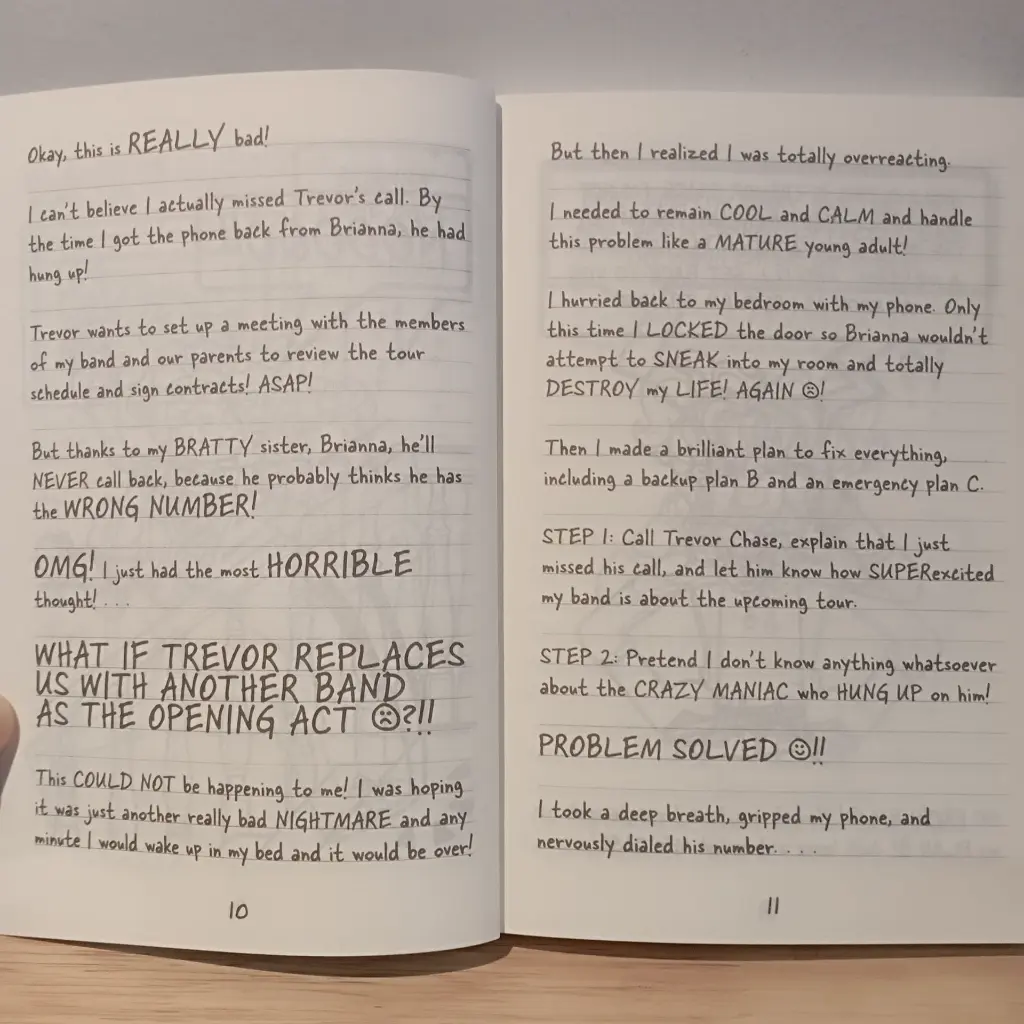 Okay, this is REALLY bad!
I can't believe I actually missed Trevor's call. By
the time I got the phone back from Brianna, he had
hung up!
Trevor wants to set up a meeting with the members
of my band and our parents to review the tour
schedule and sign contracts! ASAP!
But thanks to my BRATTY sister, Brianna, he'll
NEVER call back, because he probably thinks he has
the WRONG NUMBER!
OMG! I just had the most HORRIBLE
thought! . . .
WHAT IF TREVOR REPLACES
US WITH ANOTHER BAND
AS THE OPENING ACT ☹?!!
This COULD NOT be happening to me! I was hoping
it was just another really bad NIGHTMARE and any
minute I would wake up in my bed and it would be over!
10
But then I realized I was totally overreacting.
I needed to remain COOL and CALM and handle
this problem like a MATURE young adult!
I hurried back to my bedroom with my phone. Only
this time I LOCKED the door so Brianna wouldn't
attempt to SNEAK into my room and totally
DESTROY my LIFE! AGAIN ☹!
Then I made a brilliant plan to fix everything,
including a backup plan B and an emergency plan C.
STEP 1: Call Trevor Chase, explain that I just
missed his call, and let him know how SUPERexcited
my band is about the upcoming tour.
STEP 2: Pretend I don't know anything whatsoever
about the CRAZY MANIAC who HUNG UP on him!
PROBLEM SOLVED ☺!!
I took a deep breath, gripped my phone, and
nervously dialed his number. . . .
11